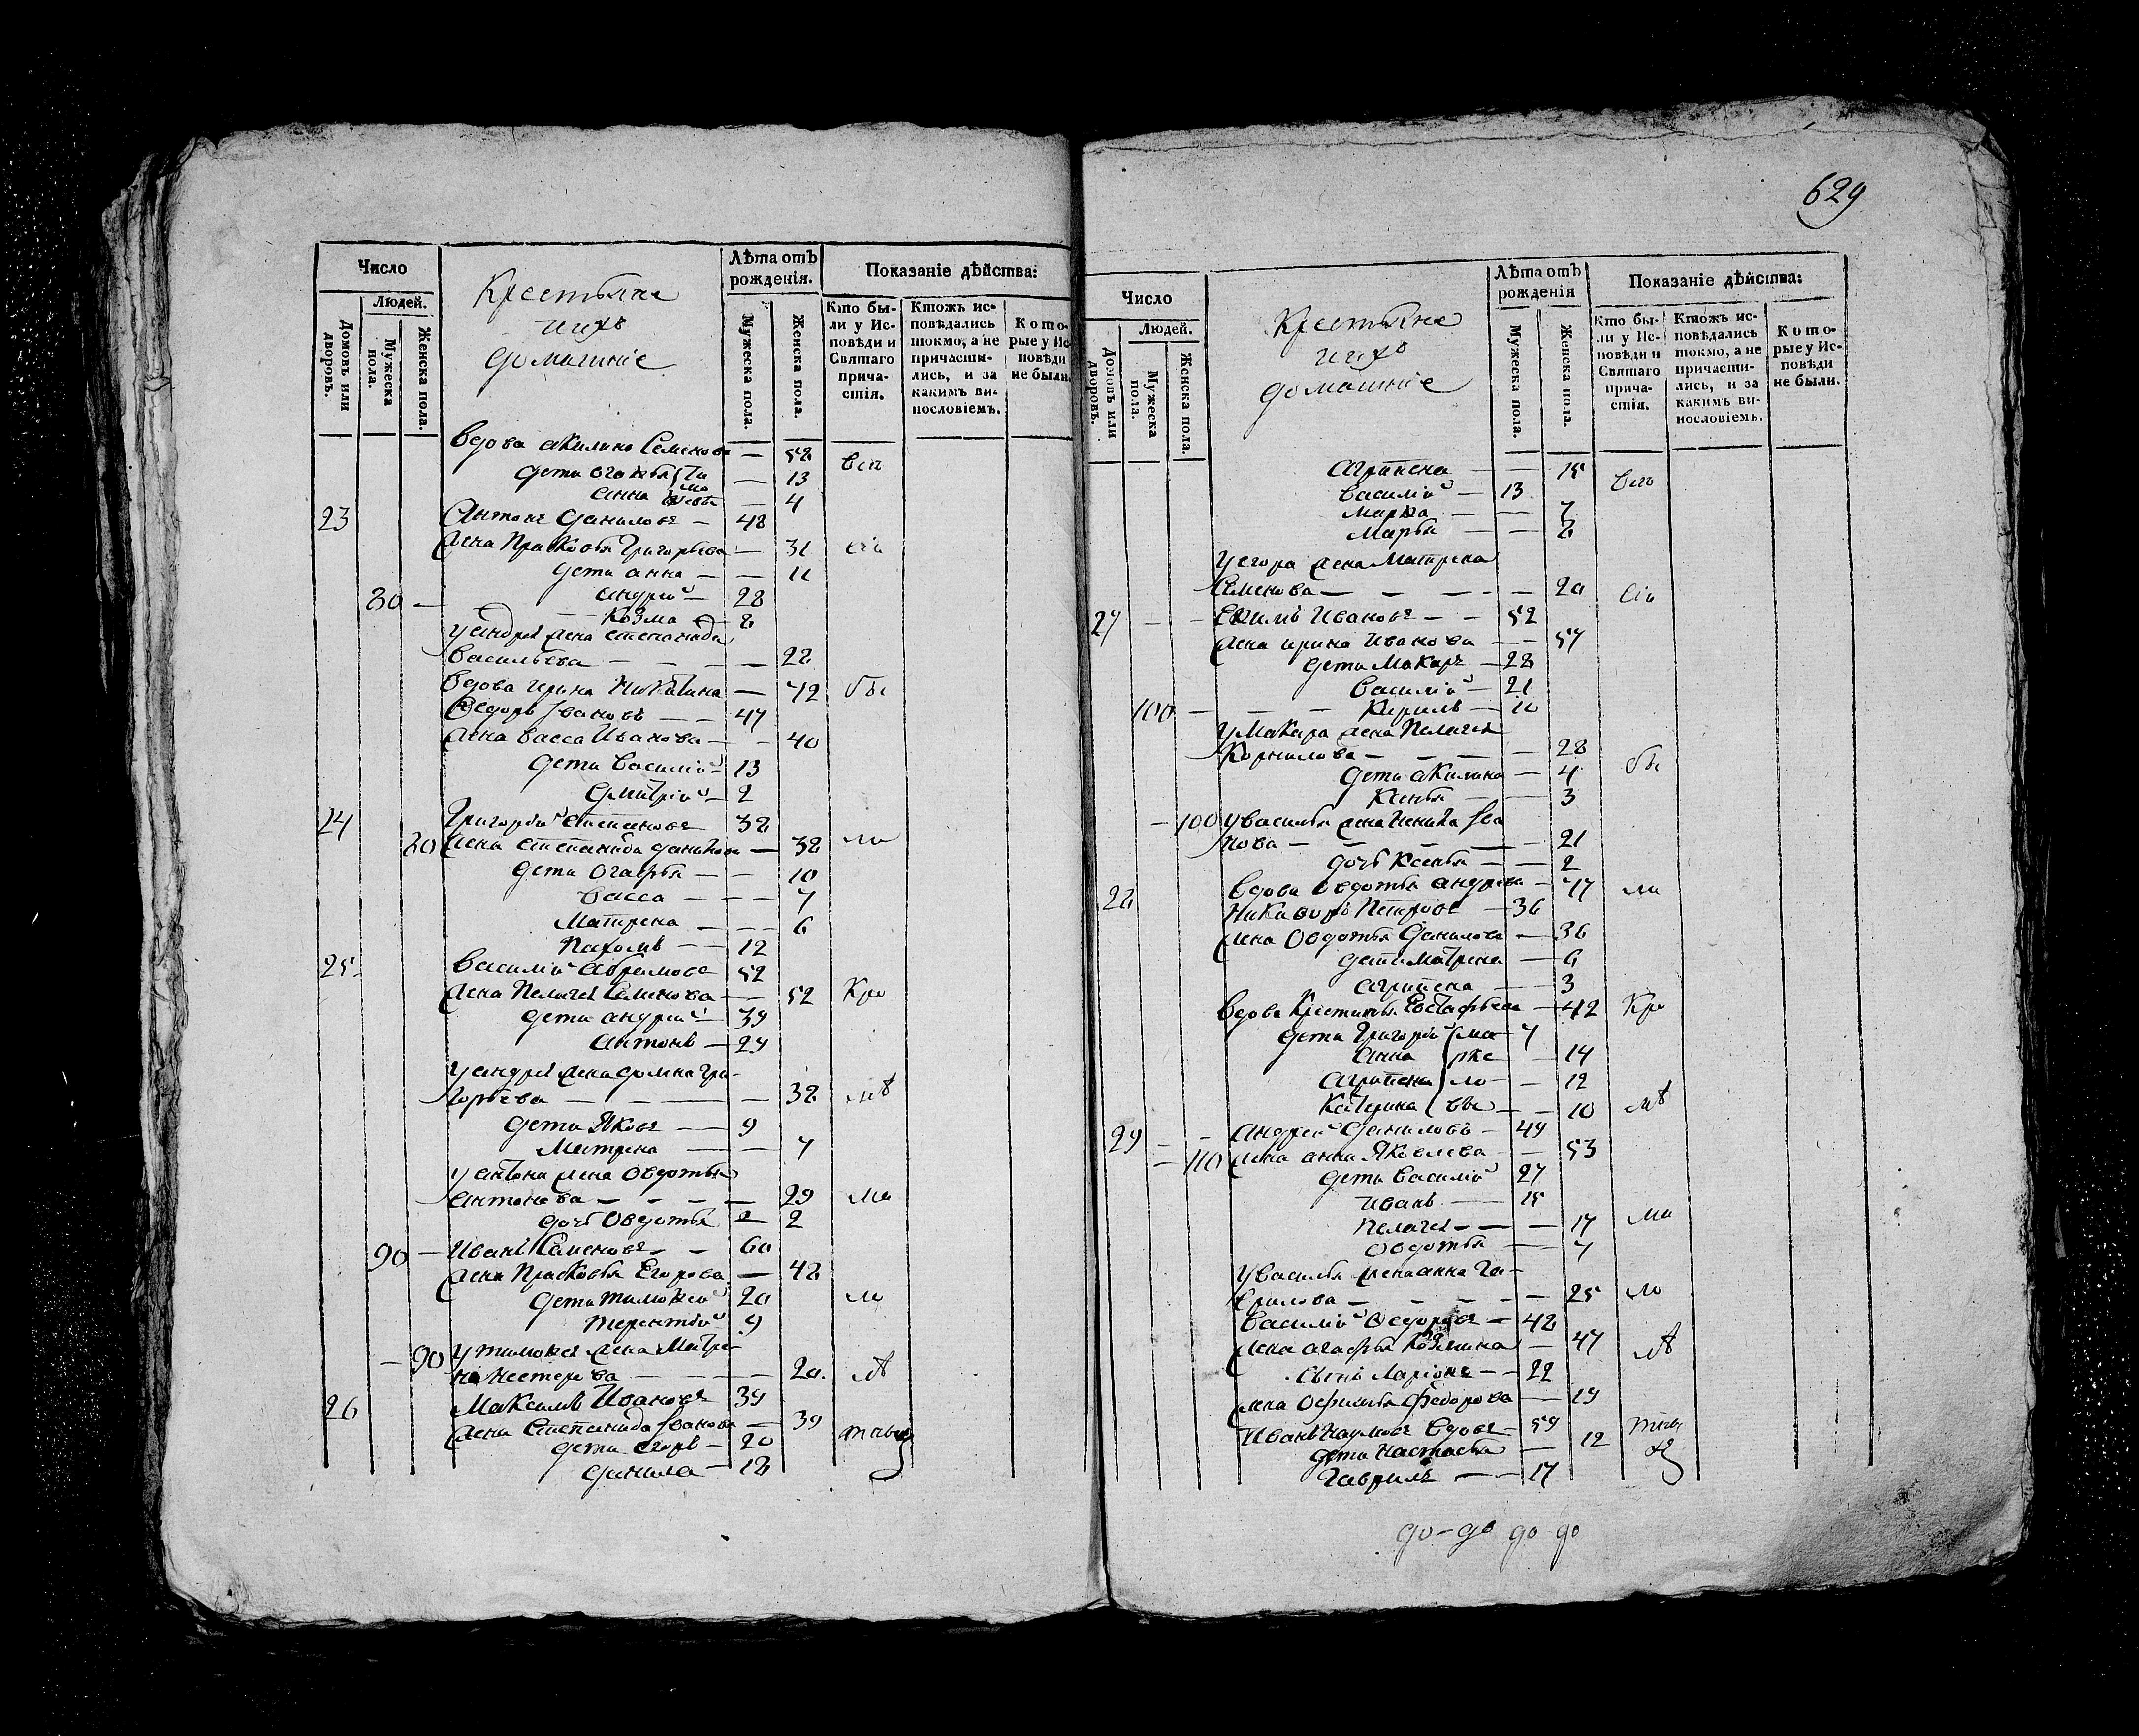 629
Число
Людей.
Домовъ или дворовъ.
Мужеска пола.
Женска пола.
Крестьяне
ихъ
домашніе
Лѣта отъ рожденія.
Мужеска пола.
Женска пола.
Показаніе дѣйства:
Кто бы-
ли у Ис-
повѣди и
Святаго
прича-
стія.
Ктожъ ис-
повѣдались
токмо, а не
причасти-
лись, и за
какимъ ви-
нословіемъ.
Кото-
рые у Ис-
повѣди
не были.
Вдова акилина Семенова — 58
дети
анна — 4
23 Антонъ Даниловъ — 48
жена Прасковья Григорьева — 31
дети анна — — 11
80 — андрей — 28
Козма — 8
У андрея жена степанида
Васильева — — — — 28
Вдова ирина Никитина — 72 бы
Ѳедоръ Ивановъ — — 47
жена васса Иванова — — 40
дети василій — 13
Дмитрій — 2
24 Григорій Степановъ 38
80 жена степанида данилова — 38 ли
дети Огафья — — 10
васса — — — 7
Матрена — — — 6
Пахомъ — — 12
25 Василій абрамовъ 52
жена Пелагея Семенова — — 52 Кро
дети андрей — 39
антонъ — 29
У андрея жена домна Гри-
горьева — — — — — 38 мѣ
дети Яковъ — 9
Матрена — — 7
У антона жена Овдотья
антонова — — — — 29 ма
дочь Овдотья — 2
90 — Иванъ Семеновъ — — 60
жена Прасковья Егорова — 48
дети тимофей 20 ло
терентій 9
— 90 У тимофея жена Матре
на нестерова — — — — 20 лѣ
26 Максимъ Ивановъ 39
жена Степанида Иванова — 39 тныхъ
дети егоръ — 20
данила — 18
Число
Людей.
Домовъ или дворовъ.
Мужеска пола.
Женска пола.
Крестьяне
ихъ
домашніе
Лѣта отъ рожденія
Мужеска пола.
Женска пола.
Показаніе дѣйства:
Кто бы-
ли у Ис-
повѣди и
Святаго
прича-
стія.
Ктожъ ис-
повѣдались
токмо, а не
причасти-
лись, и за
какимъ ви-
нословіемъ.
Кото-
рые у Ис-
повѣди
не были.
агрипена — — 15
василій — 13
Марфа — — 7
Марья — — 8
У егора жена Матрена
Семенова — — — — — 20 сіи
27 — — Ефимъ Ивановъ — — 52
жена ирина Иванова — — 57
дети Макаръ — 28
василій — 21
100 — — — — Кирилъ — 10
У Макара жена Пелагея
Корнилова — — — — 28 бы
дети акилина — 4
Ксенья — — 3
— 100 У василья жена Ива
нова — — — — — 21
дочь Ксенья — — 2
28 Вдова Овдотья андреева — 77 ли
Никифоръ Петровъ — 36
жена Овдотья Данилова — 36
дети Матрена — 6
агрипена — 3
Вдова Крестинья Евстафьева — 42 Кро
дети Григорій 7
анна — 14
агрипена — — 12
Катерина — — 10 мѣ
29 — — андрей Даниловъ — 49
— 110 жена анна Яковлева — — 53
дети василій 27
иванъ — 15
Пелагея — — — 17 ма
Овдотья — — 7
У василья жена анна Га-
врилова — — — — — 25 ло
Василій Ѳедоровъ — 48
жена агафья Козмина — 47 лѣ
сынъ Ларіонъ — — 22
жена Офимья Федорова — 19
Иванъ Наумовъ вдовъ — 59
дети Настасья — 12
Гаврилъ — — 17
до-до до до